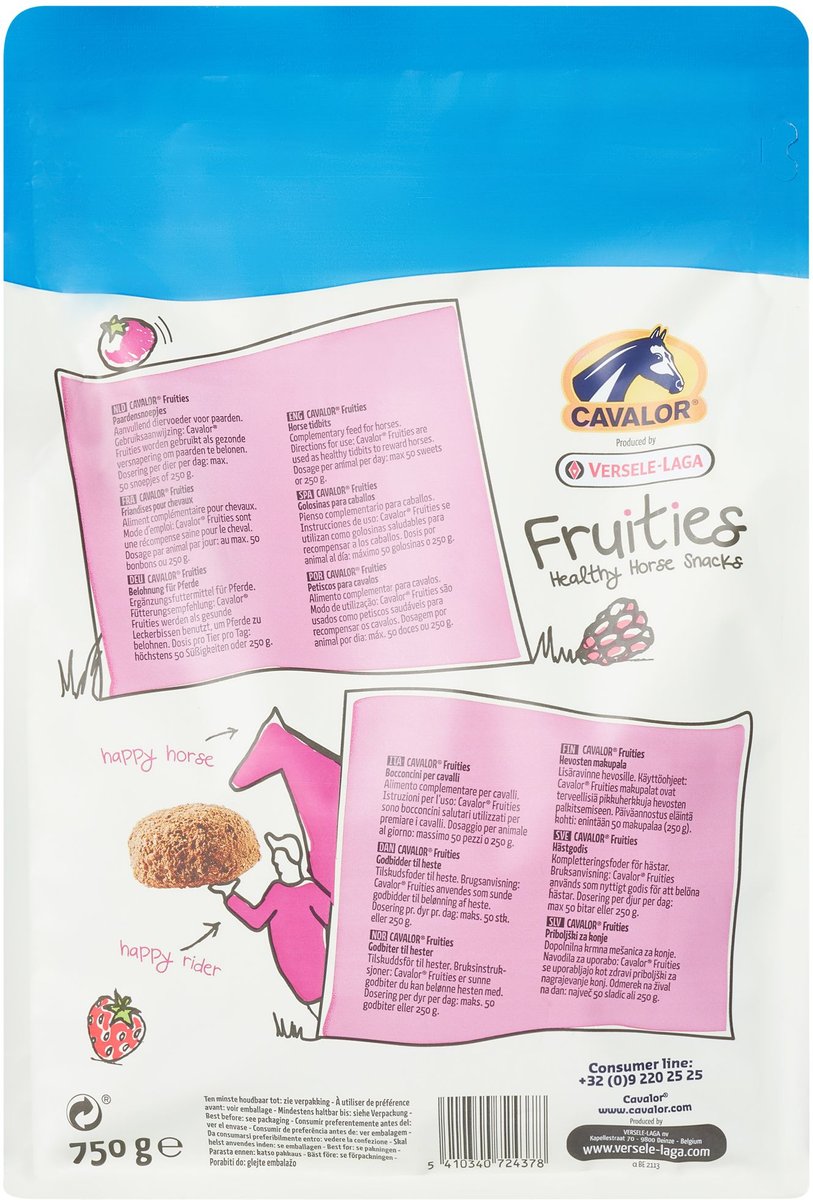 NLD CAVALOR® Fruities
Paardensnoepjes
Aanvullend diervoeder voor paarden.
Gebruiksaanwijzing: Cavalor®
Fruities worden gebruikt als gezonde
versnapering om paarden te belonen.
Dosering per dier per dag: max.
50 snoepjes of 250 g.
FRA CAVALOR® Fruities
Friandises pour chevaux
Aliment complémentaire pour chevaux.
Mode d'emploi: Cavalor® Fruities sont
une récompense saine pour le cheval.
Dosage par animal par jour: au max. 50
bonbons ou 250 g.
DEU CAVALOR® Fruities
Belohnung für Pferde
Ergänzungsfuttermittel für Pferde.
Fütterungsempfehlung: Cavalor®
Fruities werden als gesunde
Leckerbissen benutzt, um Pferde zu
belohnen. Dosis pro Tier pro Tag:
höchstens 50 Süßigkeiten oder 250 g.
ENG CAVALOR® Fruities
Horse tidbits
Complementary feed for horses.
Directions for use: Cavalor® Fruities are
used as healthy tidbits to reward horses.
Dosage per animal per day: max 50 sweets
or 250 g.
SPA CAVALOR® Fruities
Golosinas para caballos
Pienso complementario para caballos.
Instrucciones de uso: Cavalor® Fruities se
utilizan como golosinas saludables para
recompensar a los caballos. Dosis por
animal al día: máximo 50 golosinas o 250 g.
POR CAVALOR® Fruities
Petiscos para cavalos
Alimento complementar para cavalos.
Modo de utilização: Cavalor® Fruities são
usados como petiscos saudáveis para
recompensar os cavalos. Dosagem por
animal por dia: máx. 50 doces ou 250 g.
CAVALOR®
Produced by
VERSELE-LAGA
Fruities
Healthy Horse Snacks
happy horse
happy rider
ITA CAVALOR® Fruities
Bocconcini per cavalli
Alimento complementare per cavalli.
Istruzioni per l'uso: Cavalor® Fruities
sono bocconcini salutari utilizzati per
premiare i cavalli. Dosaggio per animale
al giorno: massimo 50 pezzi o 250 g.
DAN CAVALOR® Fruities
Godbidder til heste
Tilskudsfoder til heste. Brugsanvisning:
Cavalor® Fruities anvendes som sunde
godbidder til belønning af heste.
Dosering pr. dyr pr. dag: maks. 50 stk.
eller 250 g.
NOR CAVALOR® Fruities
Godbiter til hester
Tilskuddsfór til hester. Bruksinstruk-
sjoner: Cavalor® Fruities er sunne
godbiter du kan belønne hesten med.
Dosering per dyr per dag: maks. 50
godbiter eller 250 g.
FIN CAVALOR® Fruities
Hevosten makupala
Lisäravinne hevosille. Käyttöohjeet:
Cavalor® Fruities makupalat ovat
terveellisiä pikkuherkkuja hevosten
palkitsemiseen. Päiväannostus eläintä
kohti: enintään 50 makupalaa (250 g).
SVE CAVALOR® Fruities
Hästgodis
Kompletteringsfoder för hästar.
Bruksanvisning: Cavalor® Fruities
används som nyttigt godis för att belöna
hästar. Dosering per djur per dag:
max 50 bitar eller 250 g.
SLV CAVALOR® Fruities
Priboljški za konje
Dopolnilna krmna mešanica za konje.
Navodila za uporabo: Cavalor® Fruities
se uporabljajo kot zdravi priboljški za
nagrajevanje konj. Odmerek na žival
na dan: največ 50 sladic ali 250 g.
®
750 g e
Ten minste houdbaar tot: zie verpakking - À utiliser de préférence
avant: voir emballage - Mindestens haltbar bis: siehe Verpackung -
Best before: see packaging - Consumir preferentemente antes del:
ver el envase - Consumir de preferência antes de: ver embalagem -
Da consumarsi preferibilmente entro: vedere la confezione - Skal
helst anvendes inden: se emballagen - Best før: se pakningen -
Parasta ennen: katso pakkaus - Bäst före: se förpackningen -
Porabiti do: glejte embalažo
5 410340 724378
Consumer line:
+32 (0)9 220 25 25
Cavalor®
www.cavalor.com
Produced by
VERSELE-LAGA nv
Kapellestraat 70 - 9800 Deinze - Belgium
www.versele-laga.com
α BE 2113